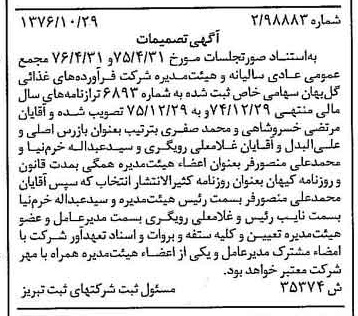 شماره ۲/۹۸۸۸۳ ۱۳۷۶/۱۰/۲۹
آگهی تصمیمات
به‌استناد صورتجلسات مورخ ۷۵/۴/۳۱و ۷۶/۴/۳۱ مجمع
عمومی عادی سالیانه و هیئت‌مدیره شرکت فرآورده‌های غذائی
گل‌بهان سهامی خاص ثبت شده به شماره ۶۸۹۳ ترازنامه‌های سال
مالی منتهی ۷۴/۱۲/۲۹و ۷۵/۱۲/۲۹ تصویب شده و آقایان
مرتضی خسروشاهی و محمد صفری بترتیب بعنوان بازرس اصلی و
علی‌البدل و آقایان غلامعلی رویگری و سیدعبداله خرم‌نیا و
محمدعلی منصورفر بعنوان اعضاء هیئت‌مدیره همگی بمدت قانون
و روزنامه کیهان بعنوان روزنامه کثیرالانتشار انتخاب که سپس آقایان
محمدعلی منصورفر بسمت رئیس هیئت‌مدیره و سیدعبداله خرم‌نیا
بسمت نایب رئیس و غلامعلی رویگری بسمت مدیرعامل و عضو
هیئت‌مدیره تعیین و کلیه سفته و بروات و اسناد تعهدآور شرکت با
امضاء مشترک مدیرعامل و یکی از اعضاء هیئت‌مدیره همراه با مهر
شرکت معتبر خواهد بود.
ش ۳۵۳۷۴ مسئول ثبت شرکتهای ثبت تبریز